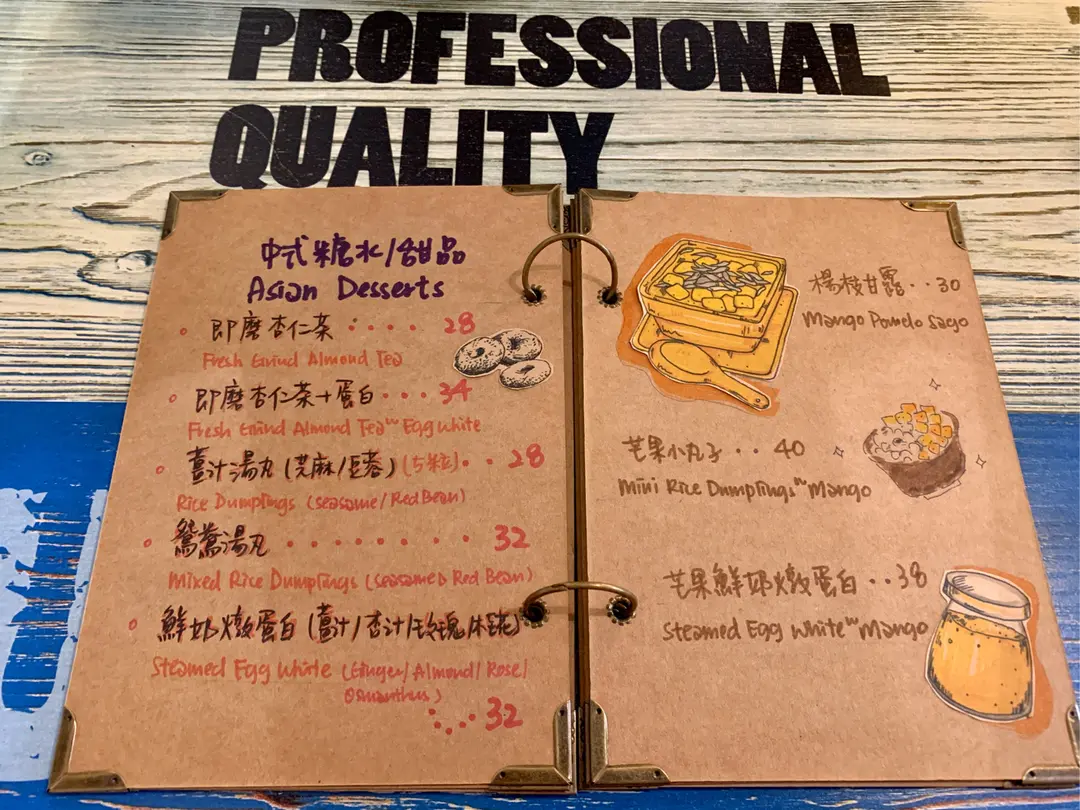 PROFESSIONAL
QUALITY
中式糖水/甜品
Asian Desserts
即磨杏仁茶 .... 28
Fresh Grind Almond Tea
即磨杏仁茶+蛋白... 34
Fresh Grind Almond Tea w Egg White
薑汁湯丸 (芝麻/豆蓉) (5粒).. 28
Rice Dumplings (seasame/Red Bean)
鴛鴦湯丸 ........ 32
Mixed Rice Dumplings (seasame & Red Bean)
鮮奶燉蛋白 (薑汁/杏汁/玫瑰/桂花)
Steamed Egg White (Ginger/Almond/Rose/
Osmanthus)
..... 32
楊枝甘露..30
Mango Pomelo Sago
芒果小丸子..40
Mini Rice Dumplings w Mango
芒果鮮奶燉蛋白..38
Steamed Egg White w Mango